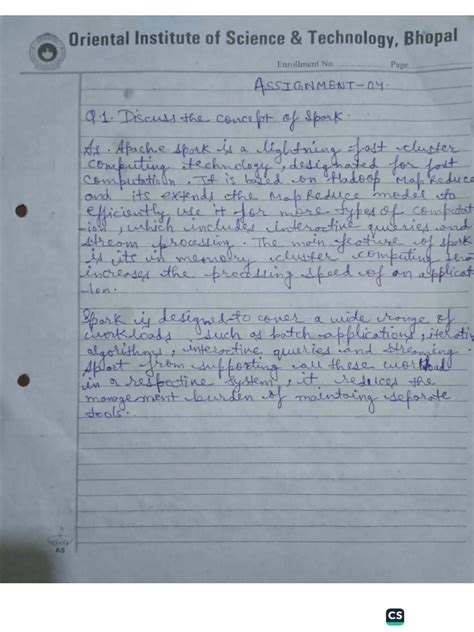 Oriental Institute of Science & Technology, Bhopal
Enrollment No. .............. Page ..............
ASSIGNMENT-04.
Q1. Discuss the concept of Spark.
A1. Apache spark is a lightning fast cluster
computing technology, designated for fast
computation. It is based on Hadoop MapReduce
and its extends the MapReduce model to
efficiently use it for more types of computat
-ion, which includes interactive queries and
stream processing. The main feature of spark
is its in memory cluster computing
increases the processing speed of an applicat
-ion.
Spark is designed to cover a wide range of
workloads such as batch applications, iterativ
algorithms, interactive queries and streaming
Apart from supporting all these workload
in a respective system, it reduces the
management burden of maintaing separate
tools.
AS
CS